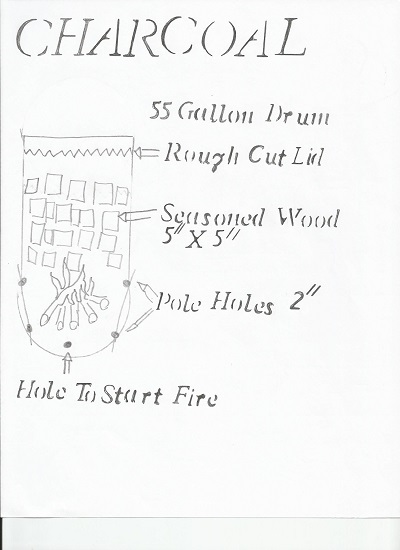 CHARCOAL
55 Gallon Drum
Rough Cut Lid
Seasoned Wood
5" X 5"
Pole Holes 2"
Hole To Start Fire